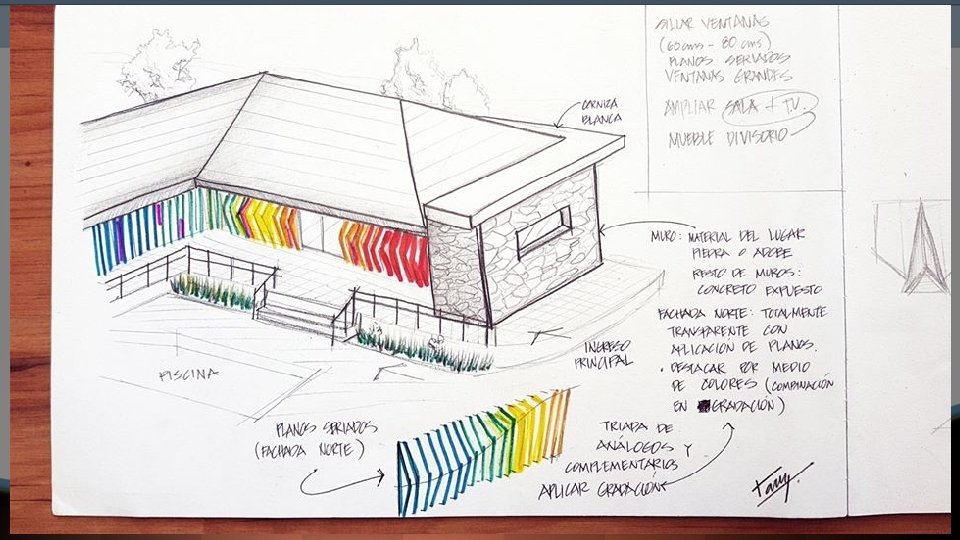 SILLAR VENTANAS
(60cms - 80 cms)
PLANOS SERIADOS
VENTANAS GRANDES
AMPLIAR SALA + TV.
MUEBLE DIVISORIO
CORNIZA
BLANCA
MURO: MATERIAL DEL LUGAR
PIEDRA O ADOBE
RESTO DE MUROS:
CONCRETO EXPUESTO
FACHADA NORTE: TOTALMENTE
TRANSPARENTE CON
APLICACIÓN DE PLANOS.
• DESTACAR POR MEDIO
DE COLORES (COMBINACIÓN
EN GRADACIÓN)
INGRESO
PRINCIPAL
PISCINA
PLANOS SERIADOS
(FACHADA NORTE)
TRIADA DE
ANÁLOGOS Y
COMPLEMENTARIOS
APLICAR GRADACIÓN